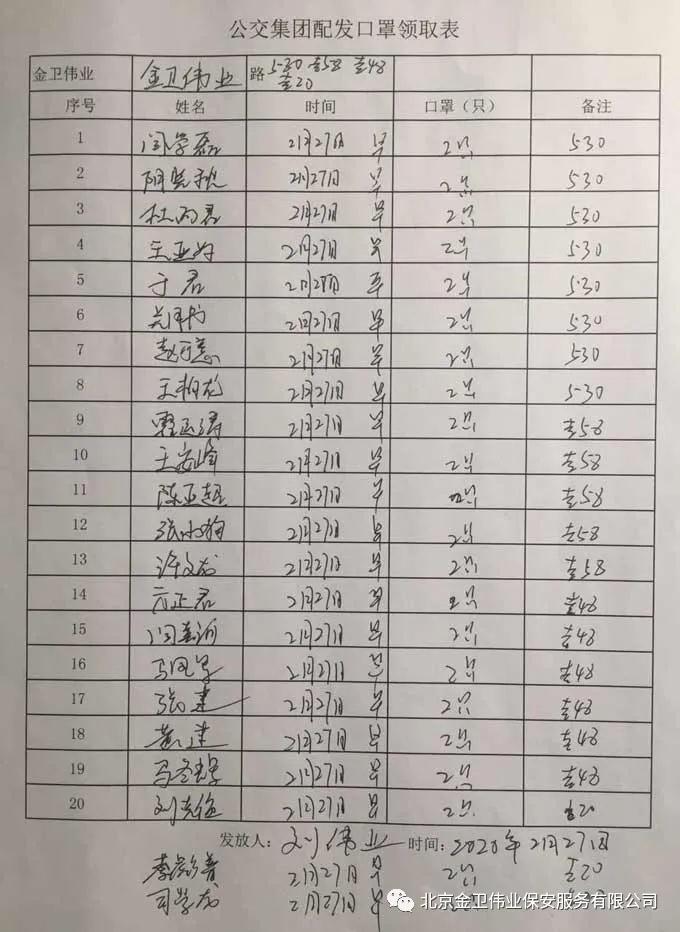 公交集团配发口罩领取表
金卫伟业 金卫伟业 路 530 专58 专48
专20
序号 姓名 时间 口罩（只） 备注
1 闫学磊 2月27日 早 2只 530
2 2月27日 早 2只 530
3 2月27日 早 2只 530
4 王亚 2月27日 早 2只 530
5 于君 2月27日 早 2只 530
6 2月27日 早 2只 530
7 2月27日 早 2只 530
8 王 2月27日 早 2只 530
9 2月27日 早 2只 专58
10 王 峰 2月27日 早 2只 专58
11 陈亚超 2月27日 早 2只 专58
12 张 2月27日 早 2只 专58
13 许文龙 2月27日 早 2只 专58
14 正君 2月27日 早 2只 专48
15 闫 2月27日 早 2只 专48
16 马 2月27日 早 2只 专48
17 张建 2月27日 早 2只 专48
18 黄建 2月27日 早 2只 专48
19 马 2月27日 早 2只 专48
20 刘 2月27日 早 2只 专20
发放人： 刘伟业 时间： 2020年2月27日
李 2月27日 早 2只 专20
司学龙 2月27日 早
北京金卫伟业保安服务有限公司